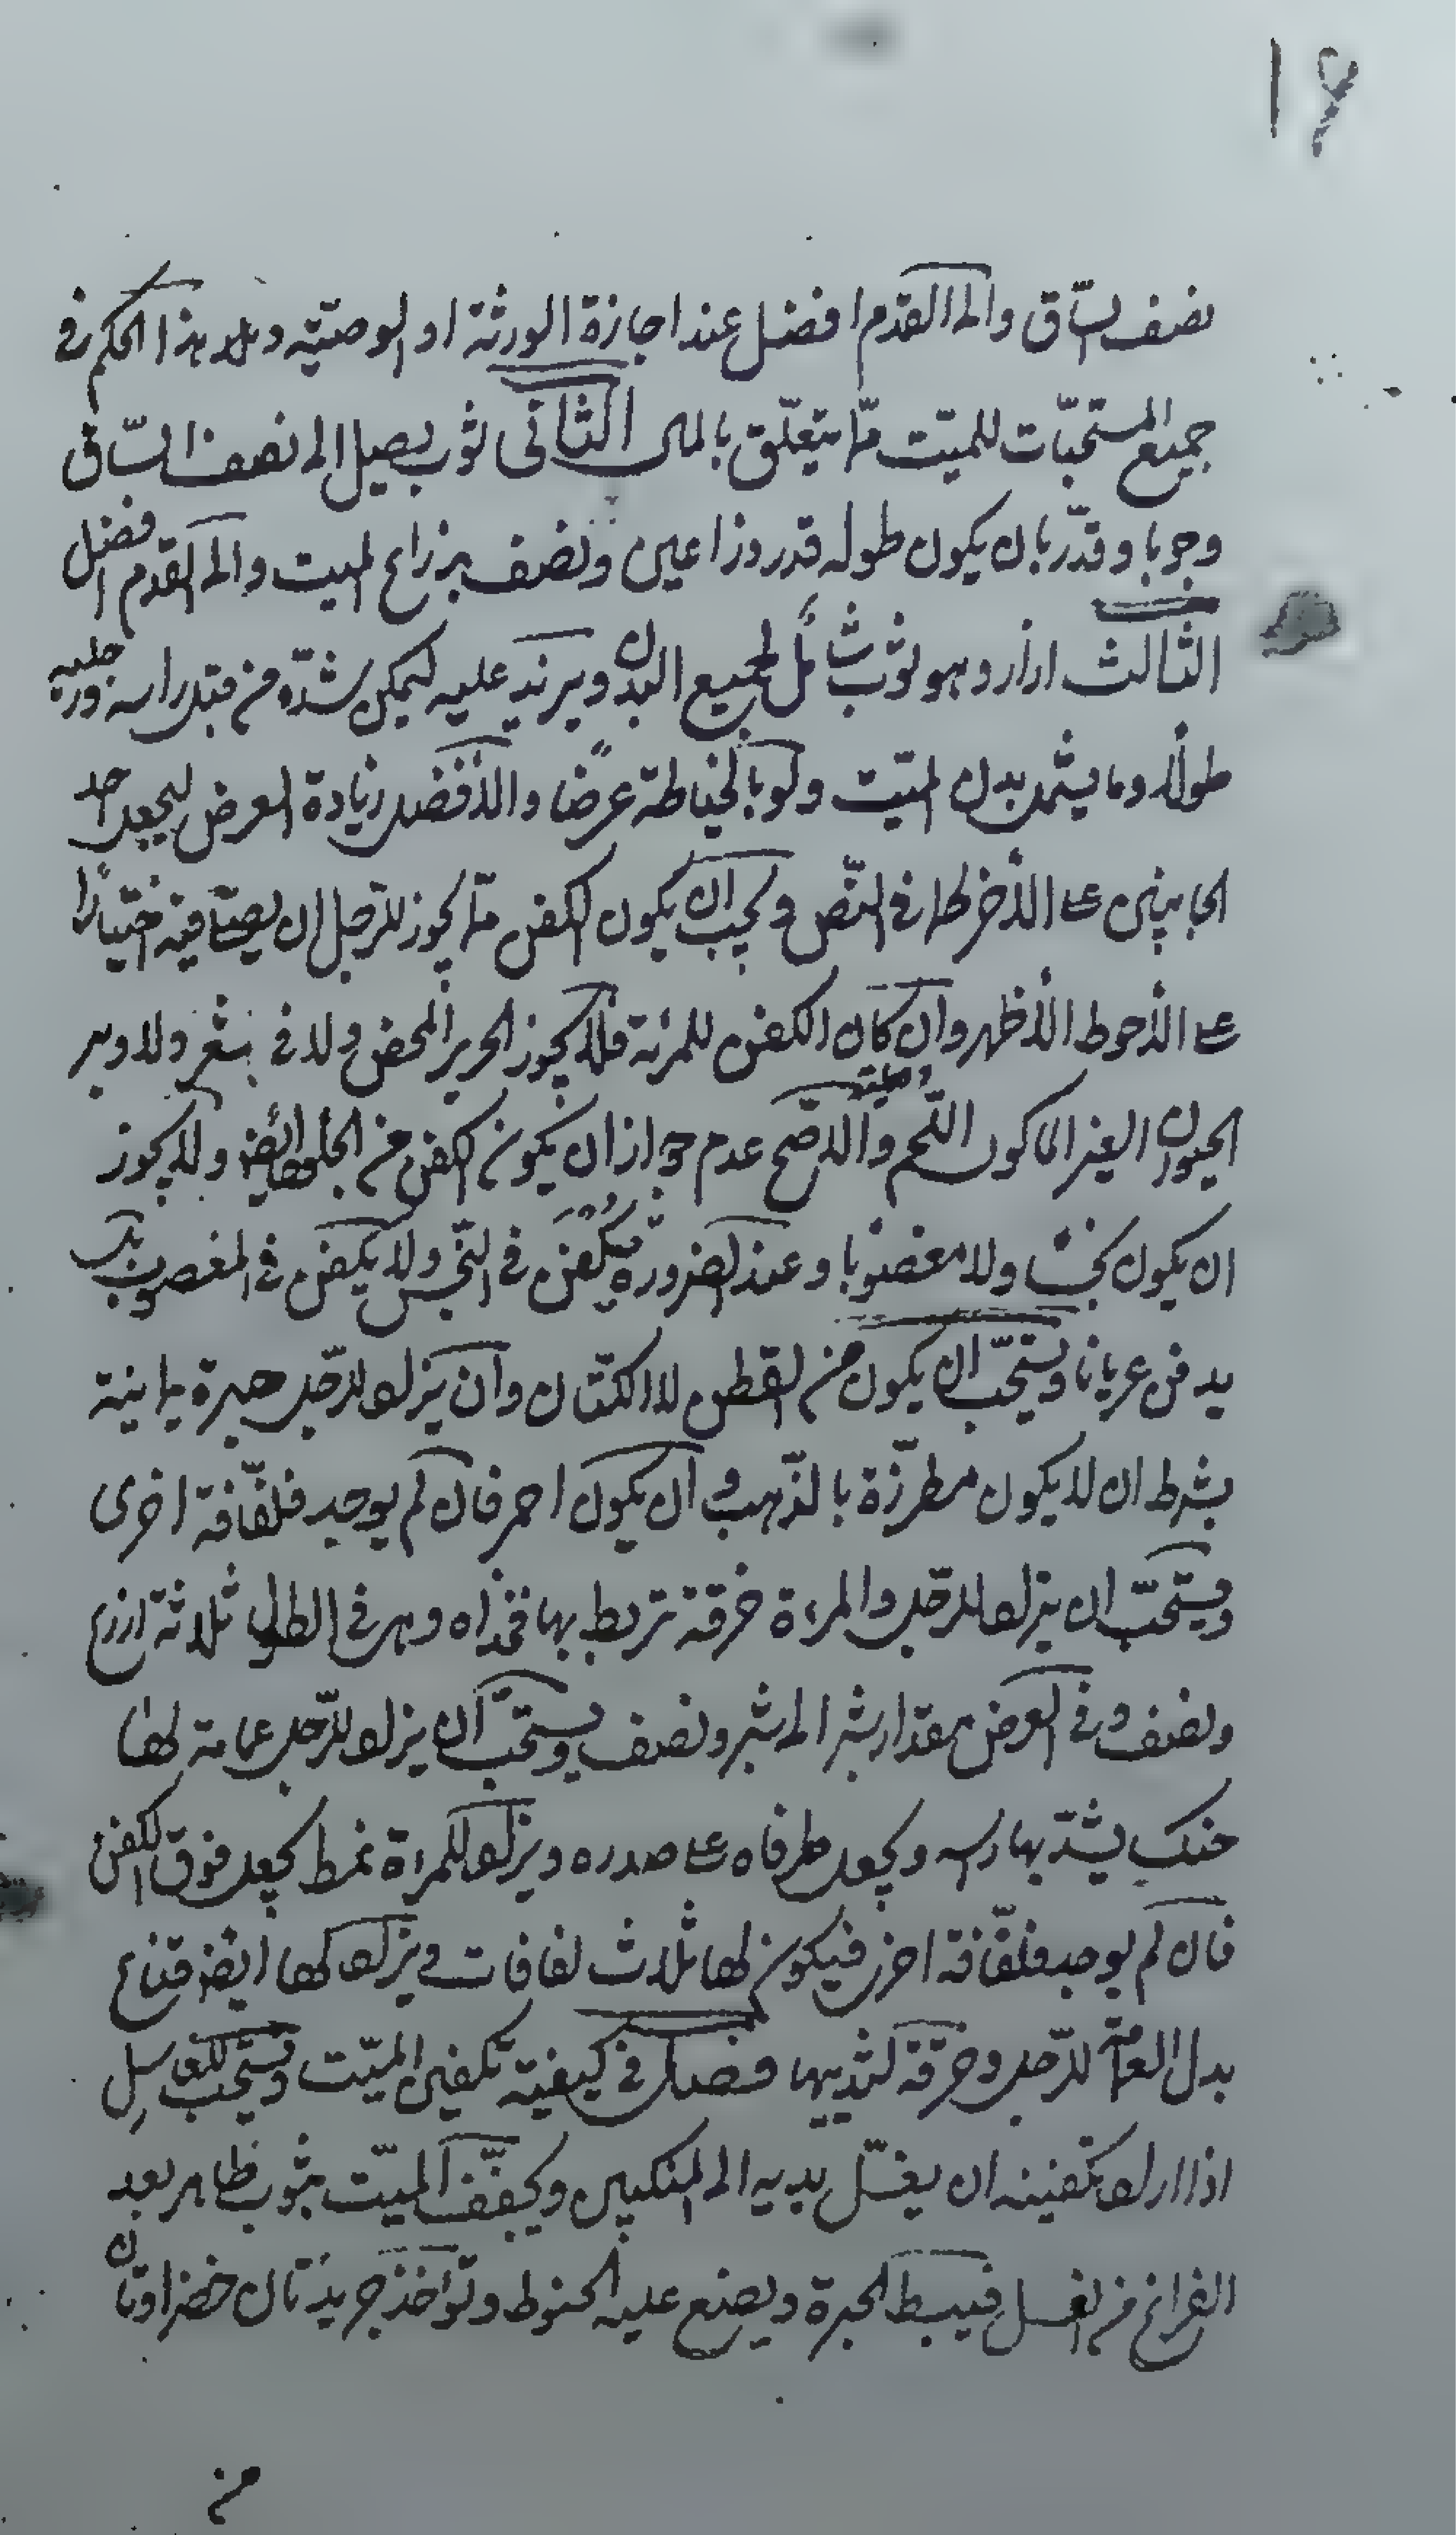 ۱۶
نصف السّاق والى القدم افضل عند اجازة الورثة او الوصيّة وهذا الحكم فى
جميع المستحبّات للميّت ممّا يتعلّق بالمال الثّانى ثوب يصل الى نصف السّاق
وجوبا وقدّر بان يكون طوله قدر ذراعين ونصف بذراع الميت والى القدم افضل
الثالث ازار وهو ثوب شامل لجميع البدن ويزيد عليه ليمكن شدّه من قبل راسه ورجليه
طولًا وما يشمل بدن الميّت ولو بالخياطة عرضًا والأفضل زيادة العرض ليجعل احد
الجانبين على الأخر كما فى النّص ويجب ان يكون الكفن ممّا يجوز للرّجل ان يصلّى فيه اختيارًا
على الأحوط الأظهر وان كان الكفن للمرئة فلا يجوز الحرير المحض ولا فى شعر ولا وبر
الحيوان الغير الماكول اللّحم والأصّح عدم جواز ان يكون الكفن من الجلود ايضا ولا يجوز
ان يكون نجسًا ولا مغصوبا وعند الضرورة يكفن فى النّجس ولا يكفن فى المغصوب بل
يدفن عريانا ويستحّب ان يكون من القطن لا الكتّان وان يزاد للرّجل حبرة يمانية
بشرط ان لا يكون مطرّزة بالذّهب وان يكون احمر فان لم يوجد فلفّافة اخرى
ويستحّب ان يزاد للرّجل والمرءة خرقة تربط بها فخذاه وهى فى الطول ثلاثة اذرع
ونصف وفى العرض مقدار شبر الى شبر ونصف ويستحّب ان يزاد للرّجل عمامة لها
حنك يشدّ بها راسه ويجعل طرفاه على صدره ويزاد للمراة نمط يجعل فوق الكفن
فان لم يوجد فلفّافة اخرى فيكون لها ثلاث لفافات ويزاد لها ايضا قناع
بدل العمامة للرّجل وخرقة لثدييها فصل فى كيفيّة تكفين الميّت ويستحب للغاسل
اذا اراد تكفينه ان يغسّل يديه الى المنكبين ويجفّف الميّت بثوب طاهر بعد
الفراغ من الغسل فيبسط الحبرة ويضع عليه الحنوط وتؤاخذ جريدتان خضراوتان
من